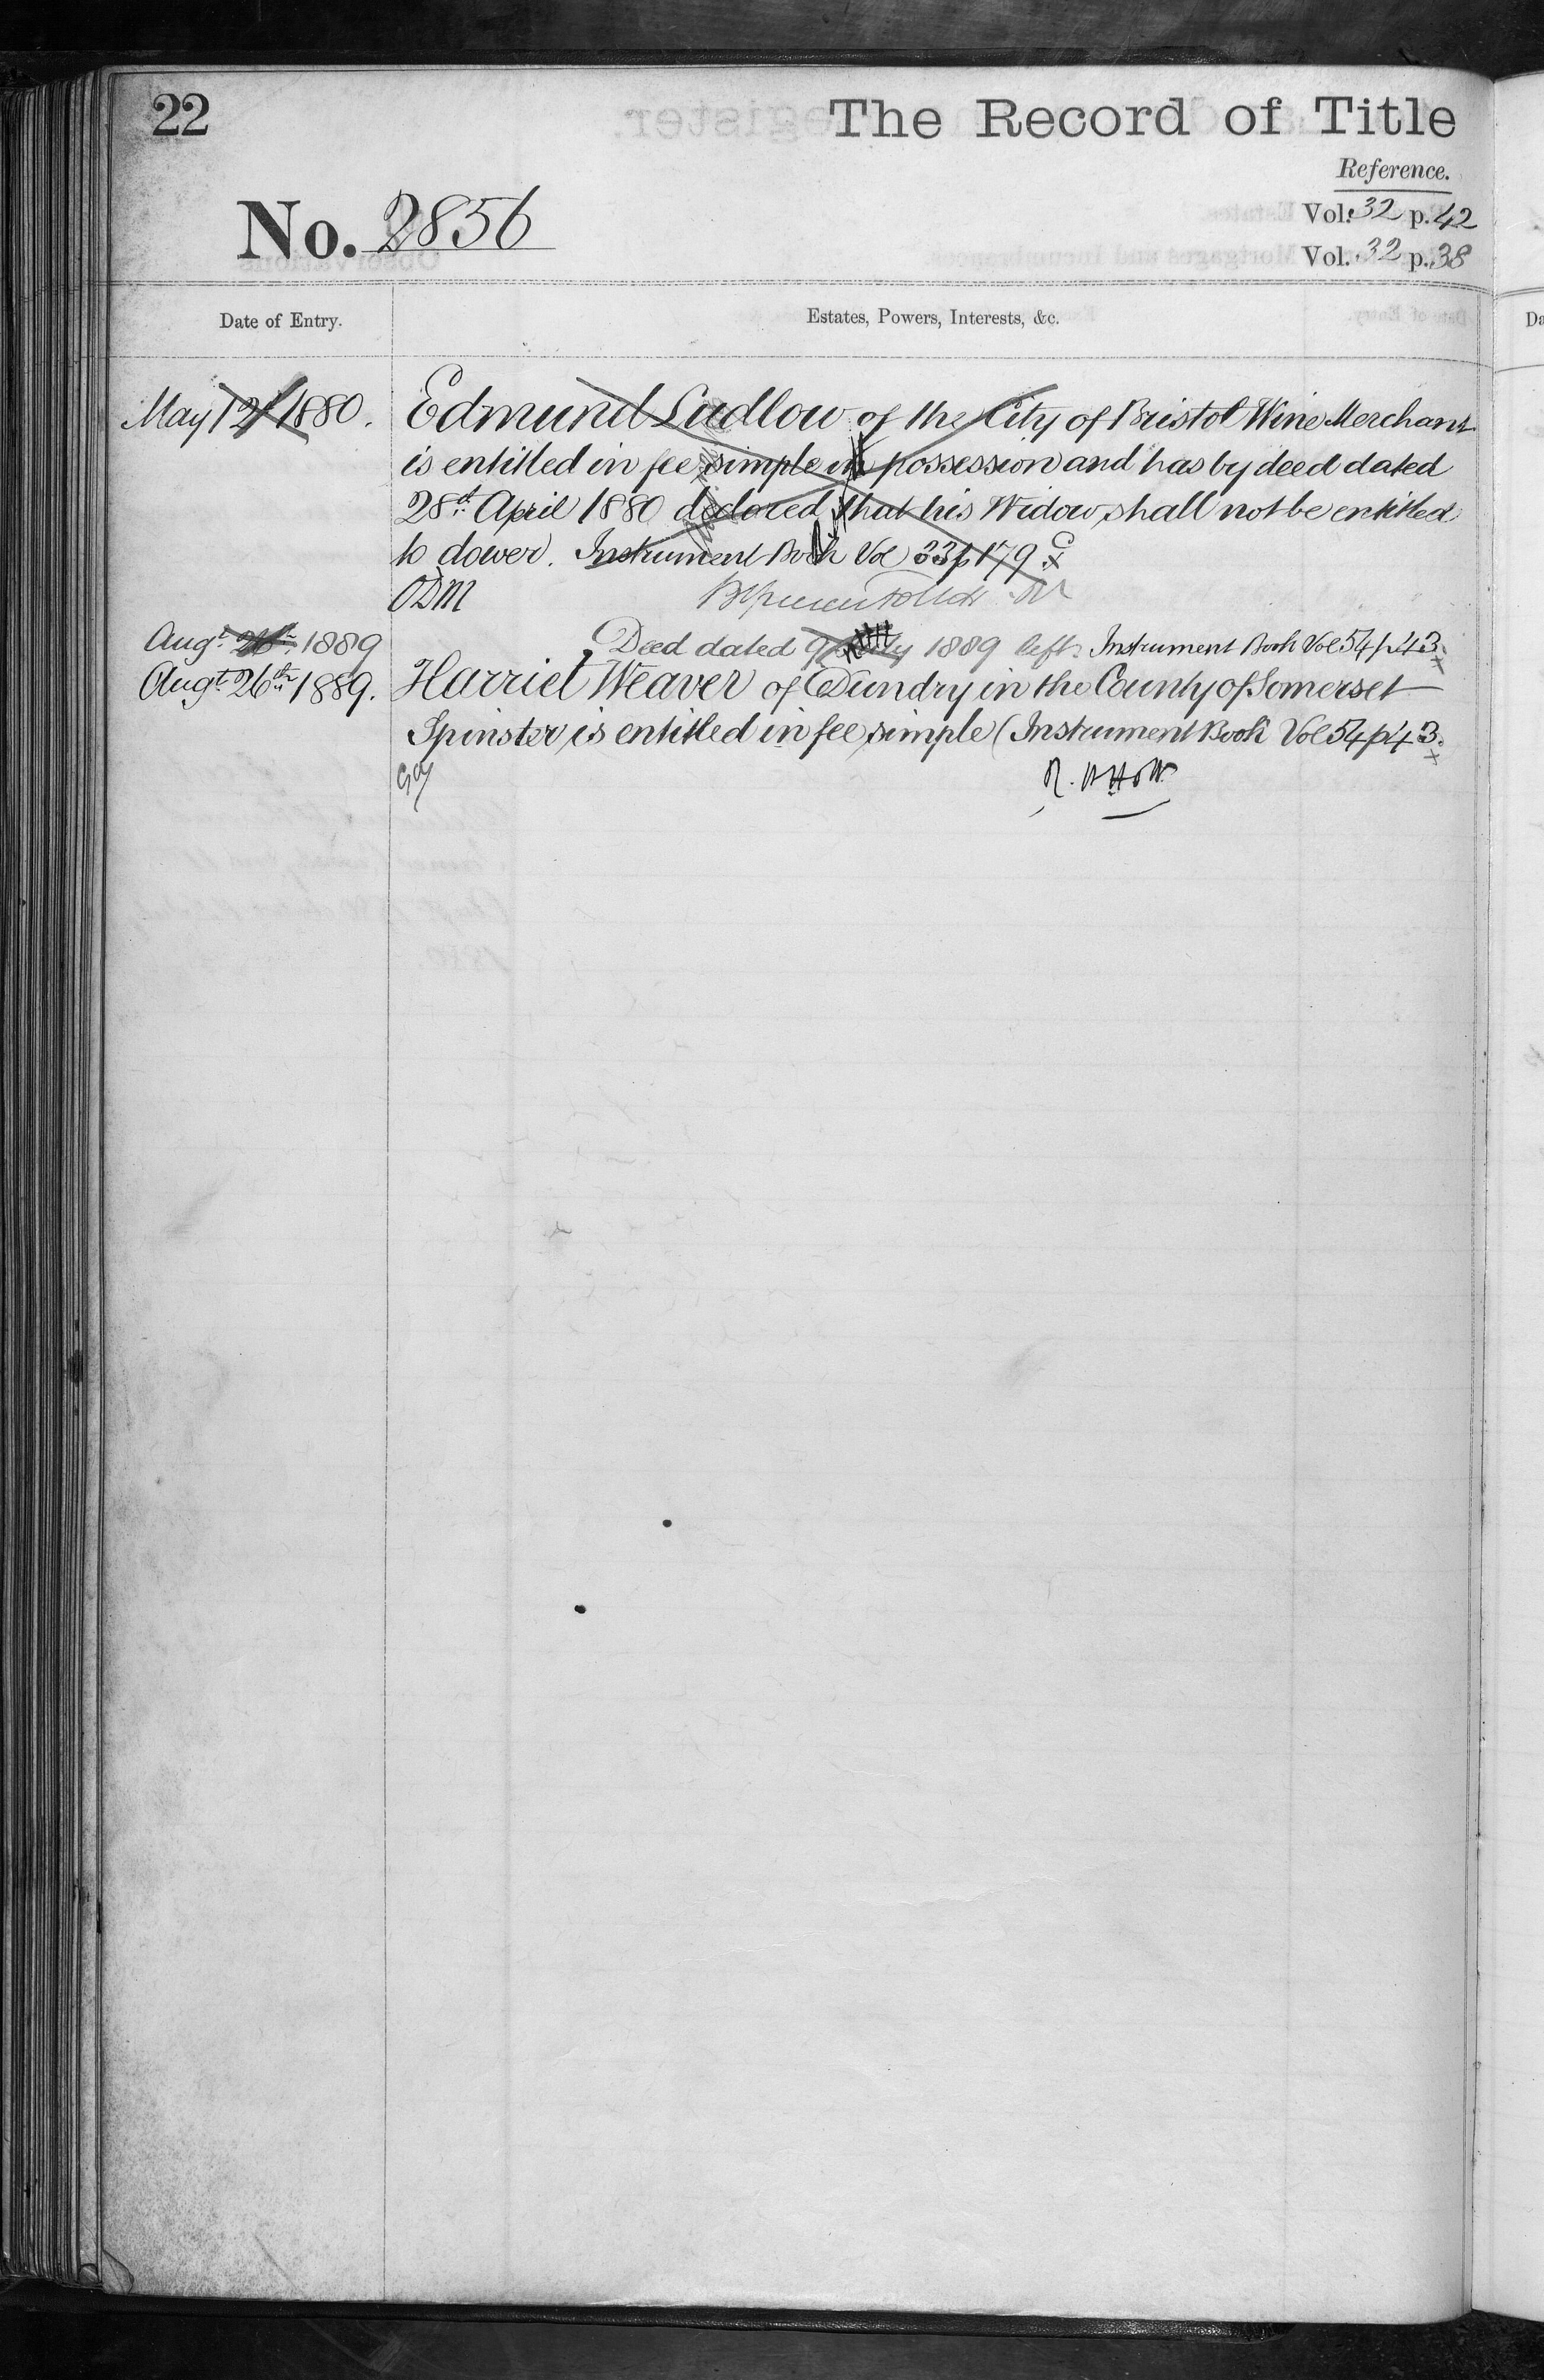 22
The Record of Title
Reference.
No. 2856
Vol. 32 p. 42
Vol. 32 p. 38
Date of Entry.
Estates, Powers, Interests, &c.
May 12th 1880. Edmund Ludlow of the City of Bristol Wine Merchant
is entitled in fee simple in possession and has by deed dated
28th April 1880 declared that his Widow shall not be entitled
to dower. Instrument Book Vol 33 p 179
ODM
Augt. 26th 1889 Deed dated 9 July 1889 left. Instrument Book Vol 54 p 43.
Augt. 26th 1889. Harriet Weaver of Dundry in the County of Somerset
Spinster is entitled in fee simple (Instrument Book Vol 54 p 43.